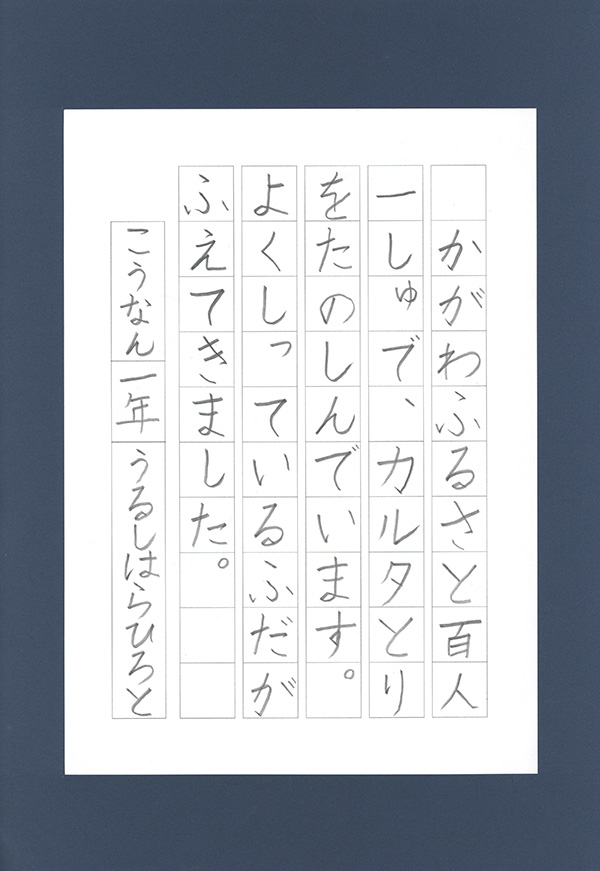 かがわふるさと百人
一しゅで、カルタとり
をたのしんでいます。
よくしっているふだが
ふえてきました。
こうなん一年 うるしはらひろと